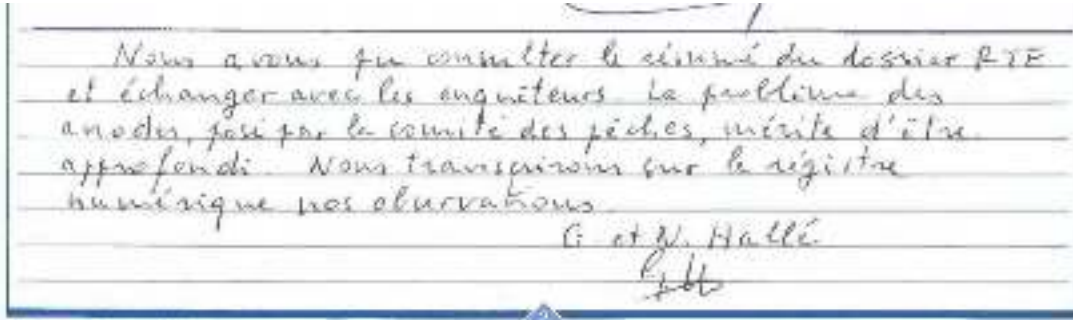 Nous avons pu consulter le résumé du dossier RTE
et échanger avec les enquêteurs. Le problème des
anodes, posé par le comité des pêches, mérite d'être
approfondi. Nous transcrirons sur le régistre
numérique nos observations.
G et N. Hallé